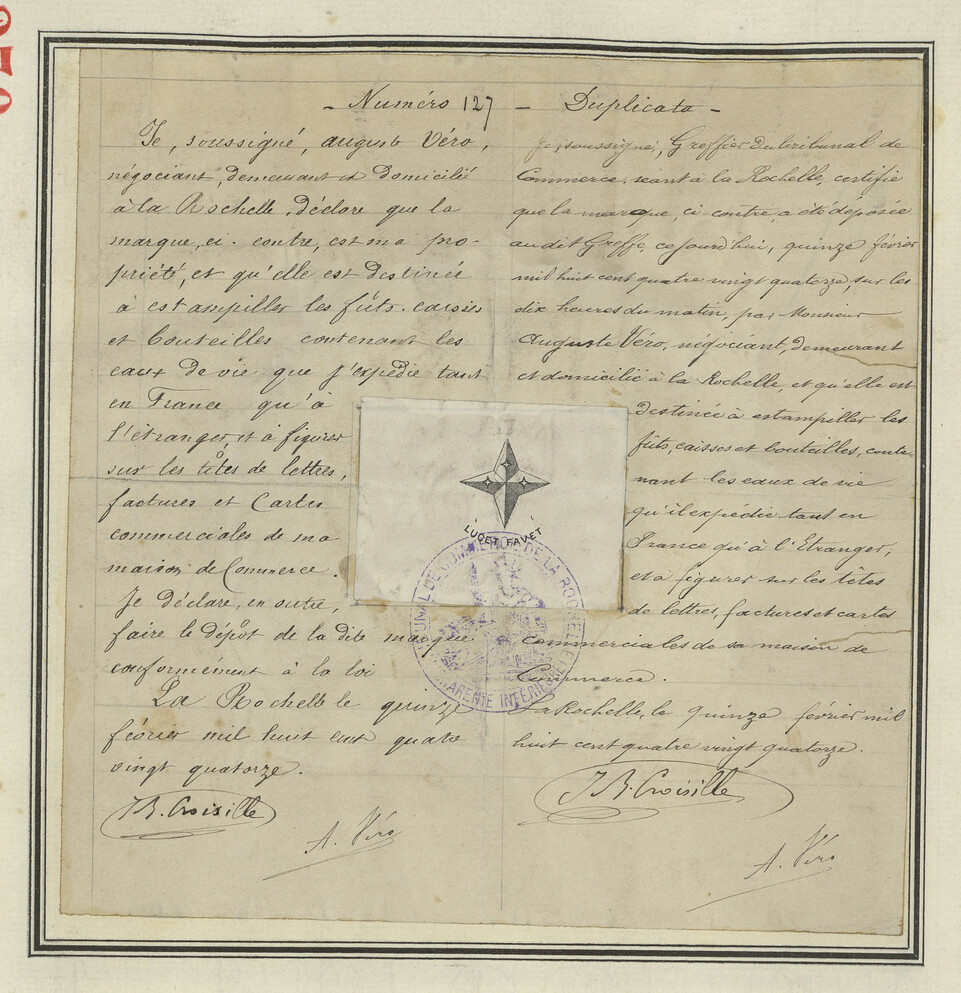 - Numéro 127 - Duplicata -
Je, soussigné, auguste Véro,
négociant, demeurant et domicilié
à la Rochelle, déclare que la
marque, ci-contre, est ma pro-
priété, et qu'elle est destinée
à estampiller les fûts, caisses
et bouteilles contenant les
eaux de vie que j'expédie tant
en France qu'à
l'étranger, et à figurer
sur les têtes de lettres,
factures et Cartes
commerciales de ma
maison de Commerce.
Je déclare, en outre,
faire le dépôt de la dite marque
conformément à la loi
La Rochelle le quinze
février mil huit cent quatre
vingt quatorze.
JB. Croisille
A. Véro
Je, soussigné, Greffier du tribunal de
Commerce, séant à la Rochelle, certifie
que la marque, ci-contre, a été déposée
au dit Greffe, ce jourd'hui, quinze février
mil huit cent quatre vingt quatorze sur les
dix heures du matin, par Monsieur
Auguste Véro, négociant, demeurant
et domicilié à la Rochelle, et qu'elle est
destinée à estampiller les
fûts, caisses et bouteilles, conte-
nant les eaux de vie
qu'il expédie tant en
France qu'à l'Etranger,
et à figurer sur les têtes
de lettres, factures et cartes
commerciales de sa maison de
Commerce.
La Rochelle, le quinze février mil
huit cent quatre vingt quatorze.
JB. Croisille
A. Véro
LUCET FAVET
TRIBUNAL DE COMMERCE DE LA ROCHELLE
CHARENTE INFÉRIEURE